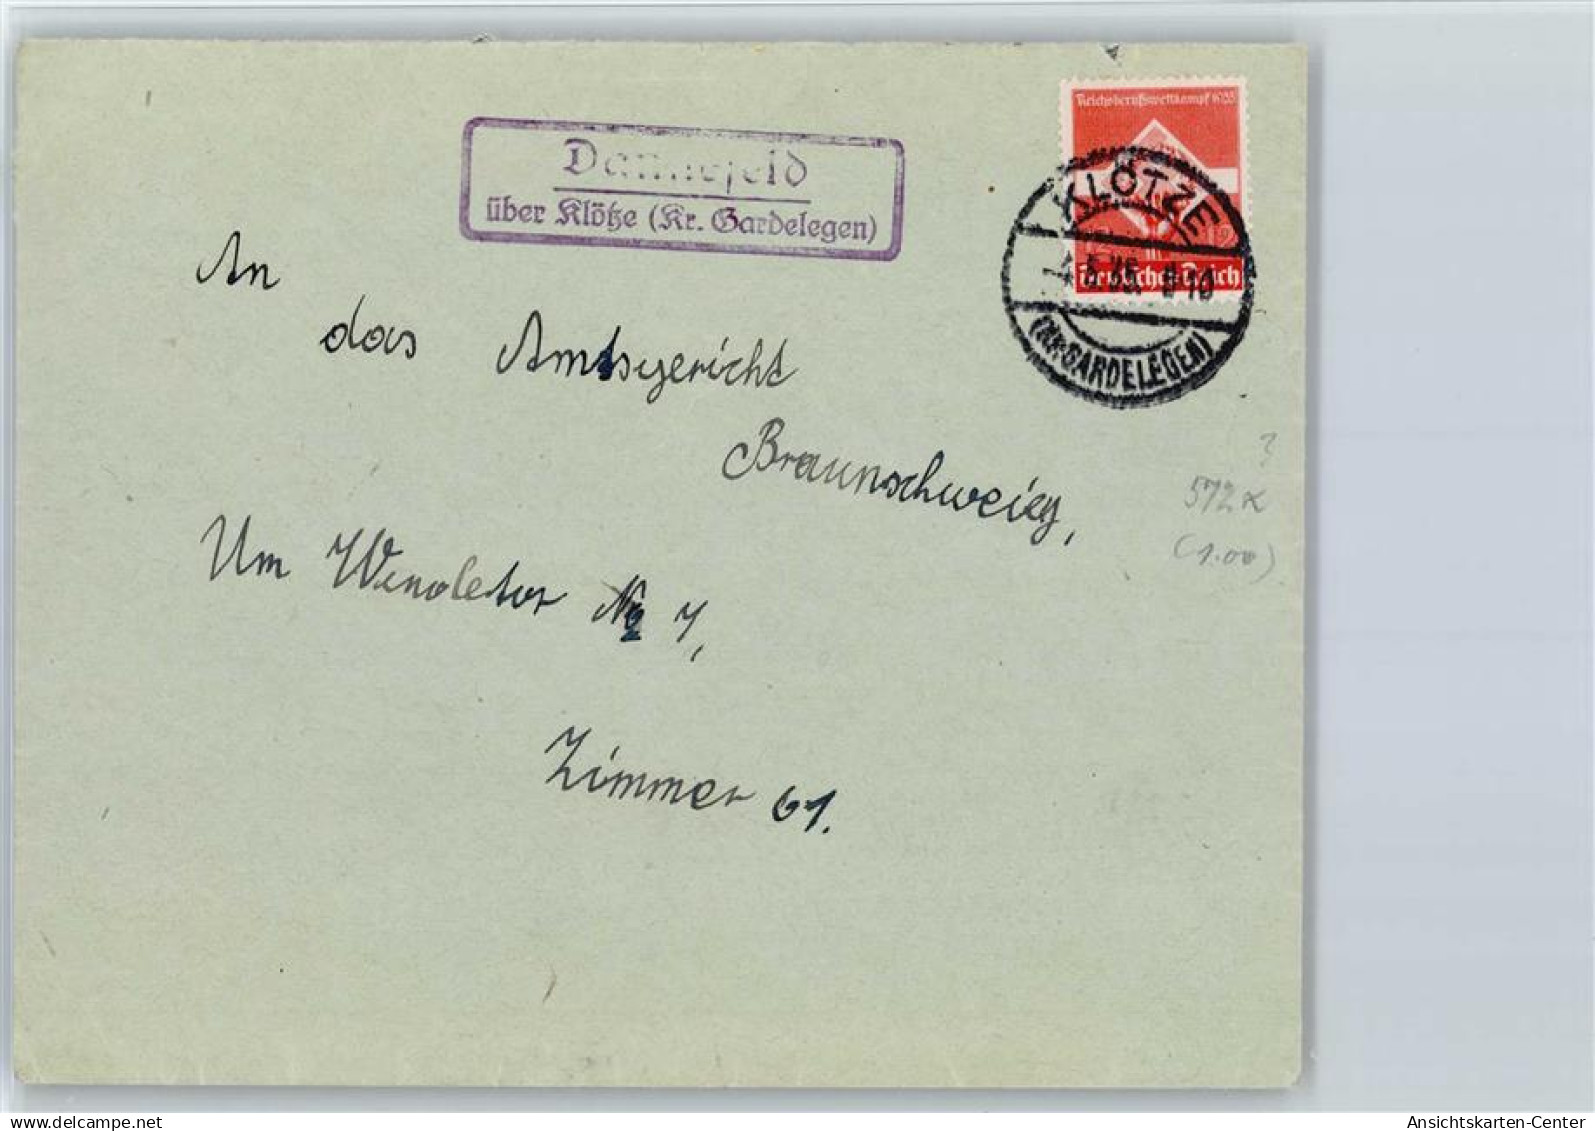 Dannefeld
über Klötze (Kr. Gardelegen)
Reichsberufswettkampf 1935
12
Deutsches Reich
KLÖTZE
4.5.35. 8-10
(KR. GARDELEGEN)
An
das Amtsgericht
Braunschweig,
Um Wendetor No 7,
Zimmer 61.
?
572x
(1.00)
delcampe.net
Ansichtskarten-Center